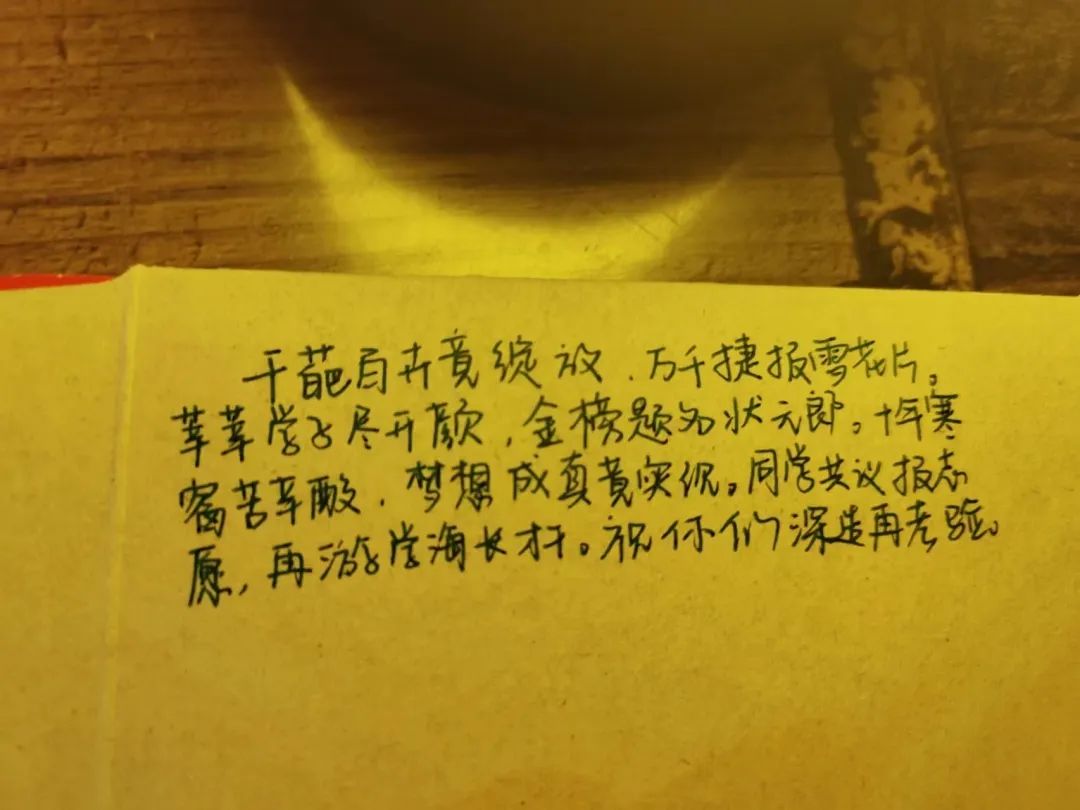 千葩百卉竟绽放，万千捷报雪花片。
莘莘学子尽开颜，金榜题名状元郎。十年寒
窗苦辛酸，梦想成真竟实现。同学共议报志
愿，再游学海长才干。祝你们深造再考验。